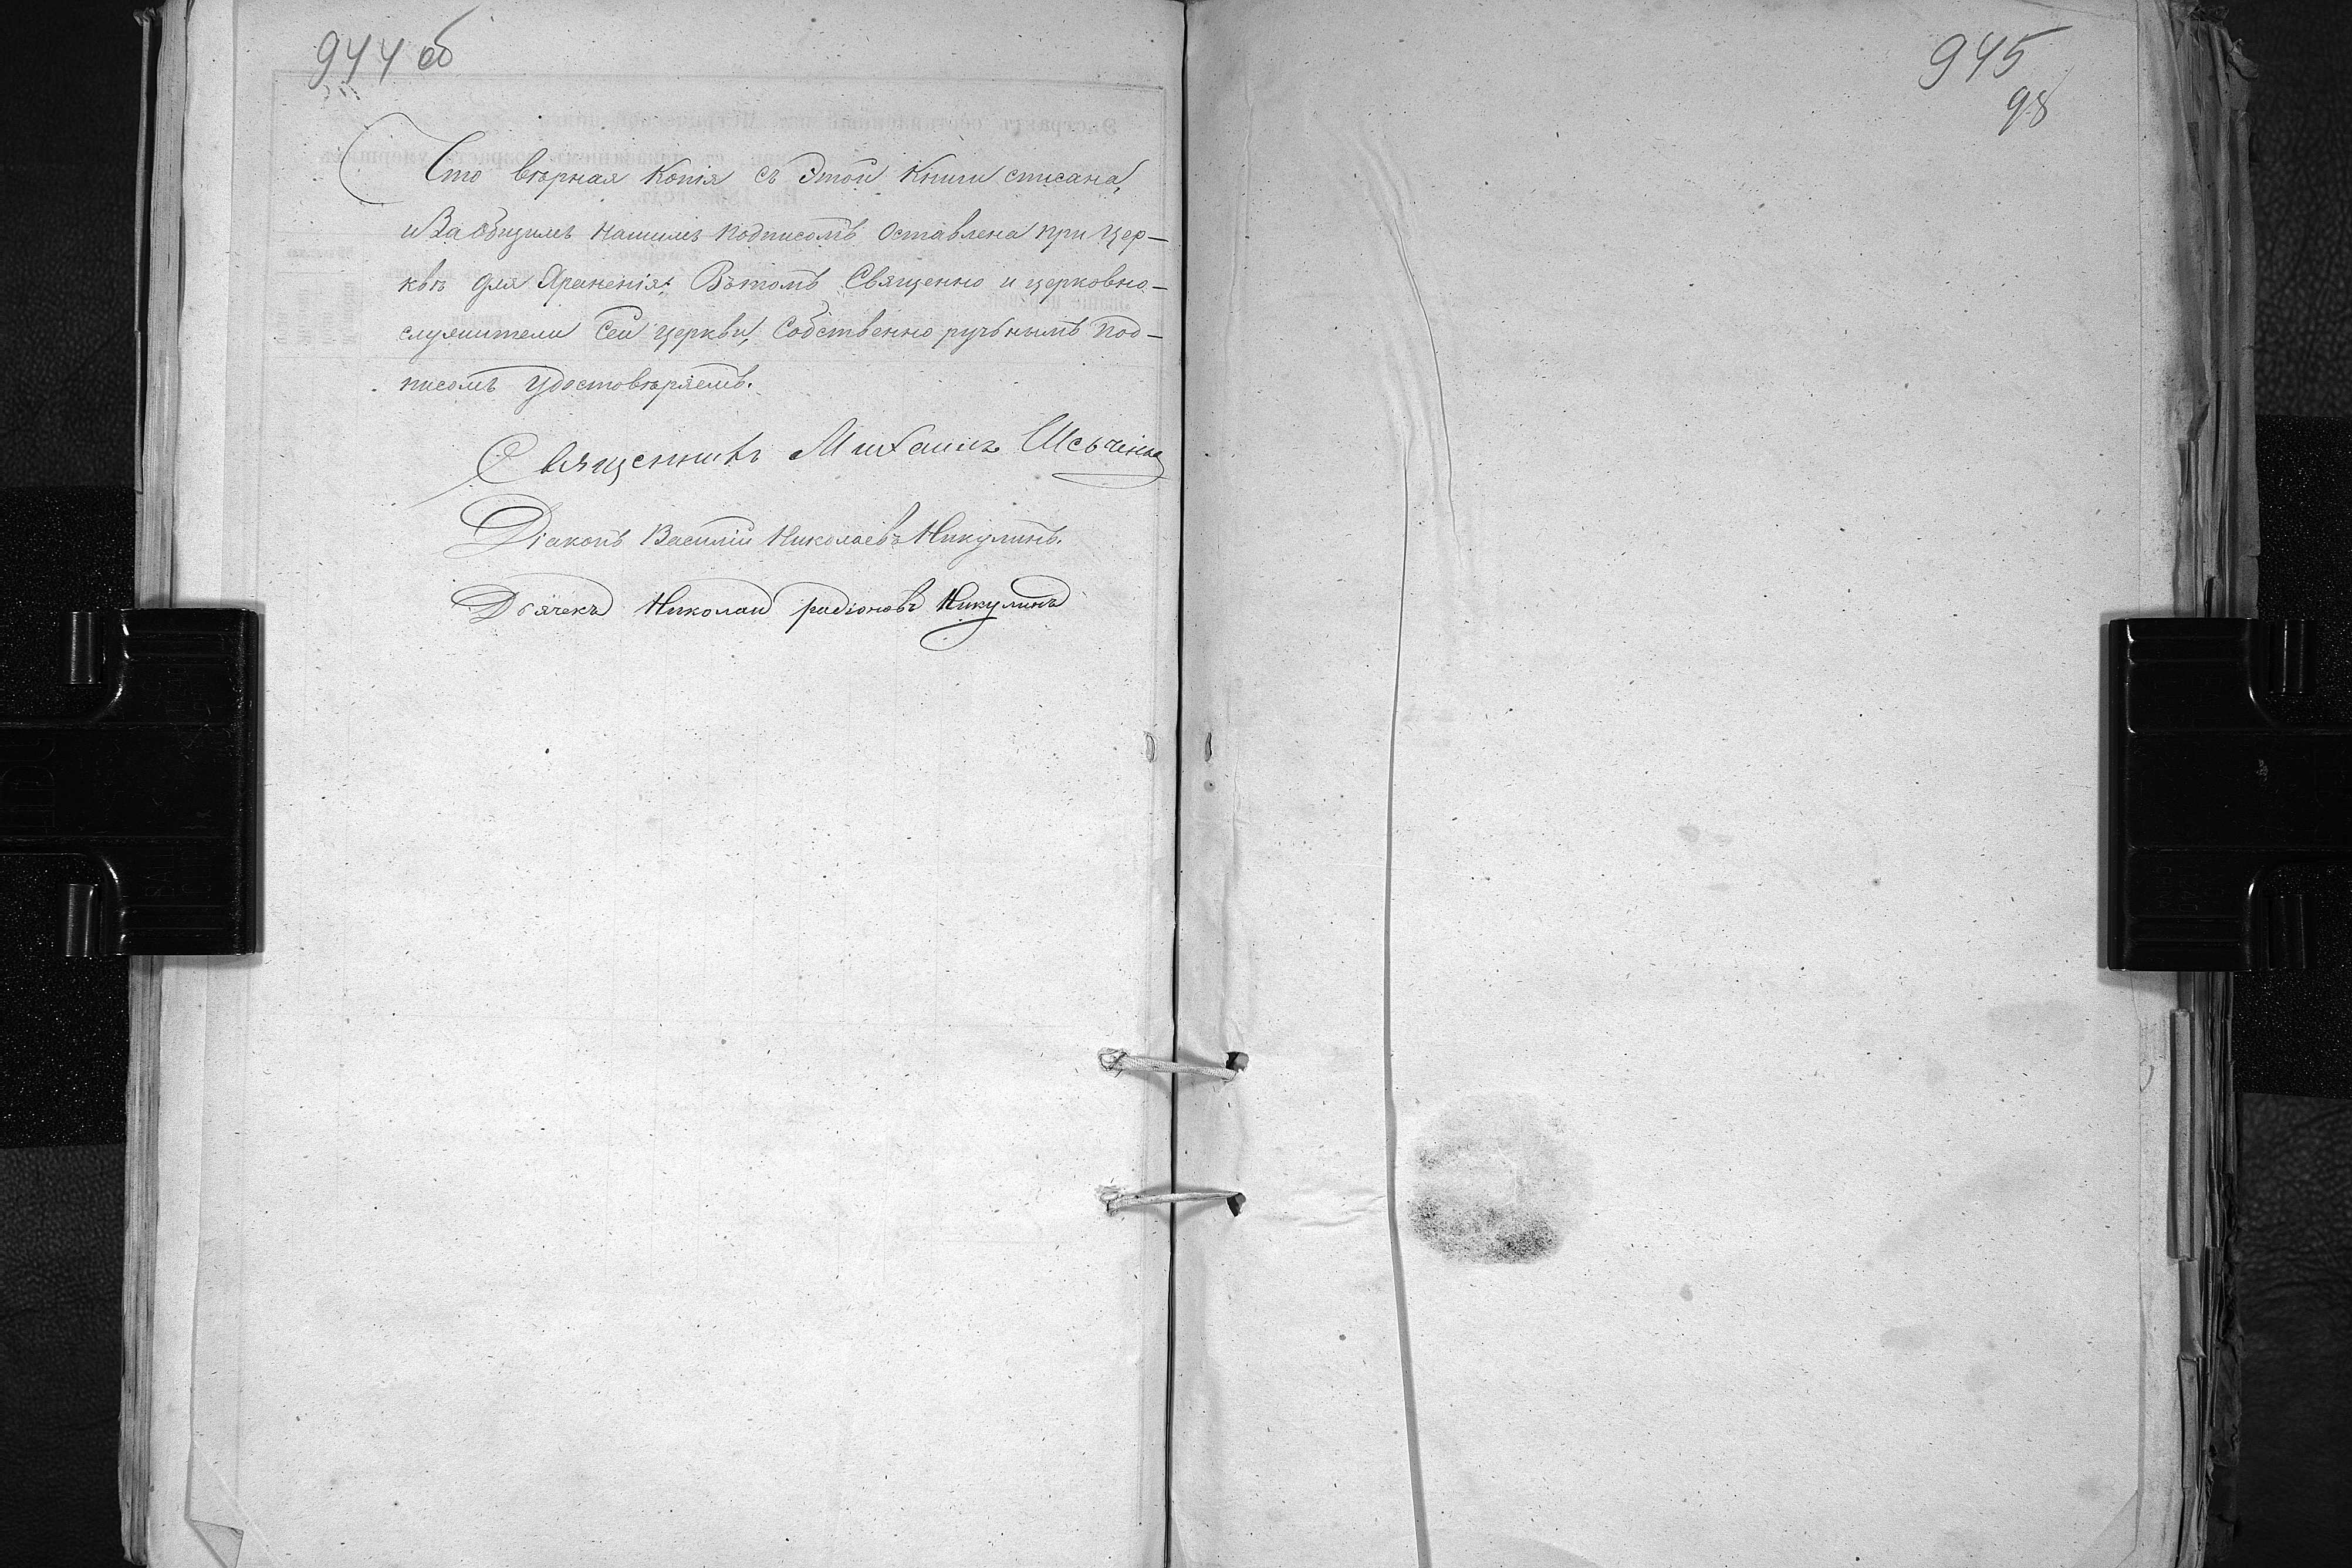 944 об
Что вѣрная Копія съ Этой Книги списана,
и За общимъ нашимъ подписомъ Оставлена при Цер-
квѣ для Храненія; Вътомъ Священно и церковно-
служители Сей церкви, Собственно ручнымъ под-
писомъ Удостовѣряемъ.
Священникъ Михаилъ
Діаконъ Василій Николаевъ Никулинъ.
Дьячекъ Николай радіоновъ Никулинъ
945
98